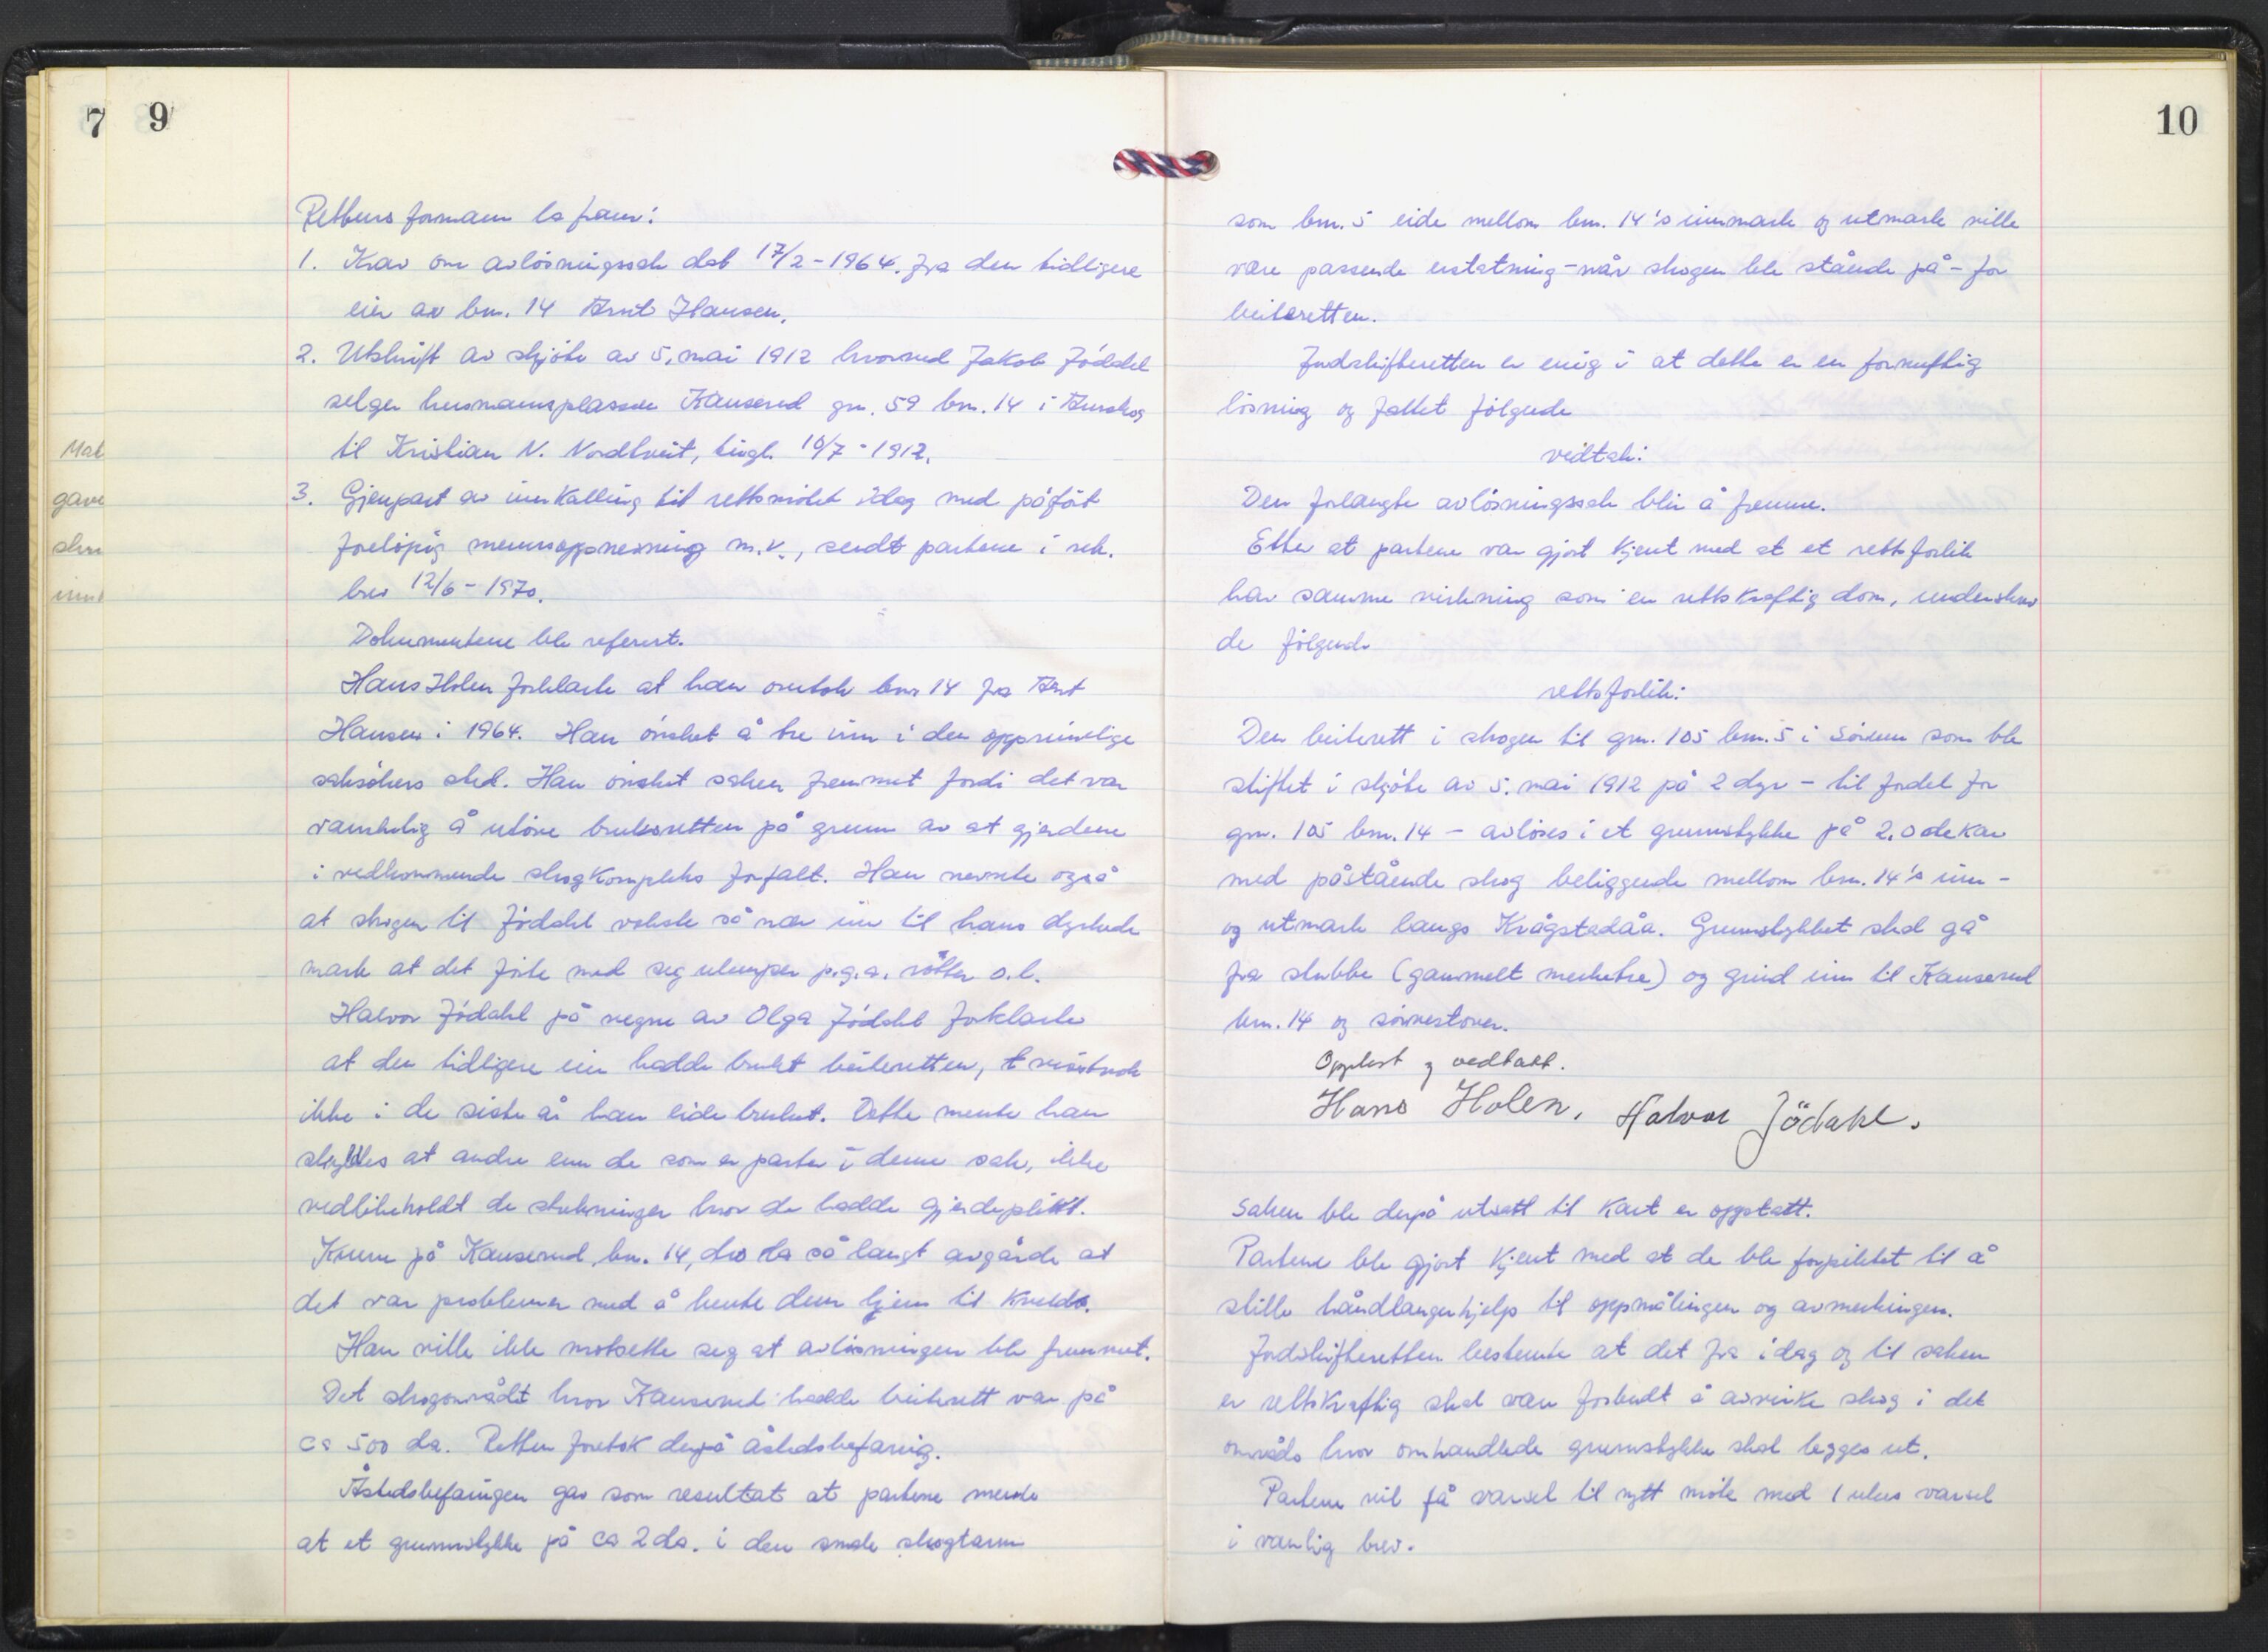 7 9
Rettens formann la fram:
1. Krav om avløsningssak dat 17/2-1964. fra den tidligere
eier av bnr. 14 Arnt Hansen.
2. Utskrift av skjøte av 5. mai 1912 hvorved Jakob Jödahl
selger husmannsplassen Kauserud gnr. 59 bnr. 14 i Aurskog
til Kristian N. Nordtveit, tingl. 10/7-1912.
3. Gjenpart av innkalling til rettsmøtet idag med påført
foreløpig mannsoppnevning m.v., sendt partene i rek.
brev 12/6-1970.
Dokumentene ble referert.
Hans Holen forklarte at han overtok bnr 14 fra Arnt
Hansen i 1964. Han ønsket å tre inn i den opprinnelige
saksøkers sted. Han ønsket saken fremmet fordi det var
vanskelig å utøve bruksretten på grunn av at gjerdene
i vedkommende skogkompleks forfalt. Han nevnte også
at skogen til Jödahl vokste så nær inn til hans dyrkede
mark at det førte med seg ulemper p.g.a. røtter o.l.
Halvor Jödahl på vegne av Olga Jödahl forklarte
at den tidligere eier hadde brukt beiteretten, visstnok
ikke i de siste år han eide bruket. Dette mente han
skyldtes at andre enn de som er parter i denne sak, ikke
vedlikeholdt de strekninger hvor de hadde gjerdeplikt.
Kuene på Kauserud, bnr. 14, dro da så langt avgårde at
det var problemer med å hente dem hjem til kvelds.
Han ville ikke motsette seg at avløsningen ble fremmet.
Det skogområdet hvor Kauserud hadde beiterett var på
ca 500 da. Retten foretok derpå åstedsbefaring.
Åstedsbefaringen gav som resultat at partene mente
at et grunnstykke på ca 2 da. i den smale skogtarm
10
som bnr. 5 eide mellom bnr. 14's innmark og utmark ville
være passende erstatning - når skogen ble stående på - for
beiteretten.
Jordskifteretten er enig i at dette er en fornuftig
løsning og fattet følgende
vedtak:
Den forlangte avløsningssak blir å fremme.
Etter at partene var gjort kjent med at et rettsforlik
har samme virkning som en rettskraftig dom, underskrev
de følgende
rettsforlik:
Den beiterett i skogen til gnr. 105 bnr. 5 i Sørum som ble
stiftet i skjøte av 5. mai 1912 på 2 dyr - til fordel for
gnr. 105 bnr. 14 - avløses i et grunnstykke på 2.0 dekar
med påstående skog beliggende mellom bnr. 14's inn-
og utmark langs Krågstadåa. Grunnstykket skal gå
fra stubbe (gammelt merketre) og grind inn til Kauserud
bnr. 14 og sørvestover.
Opplest og vedtatt.
Hans Holen. Halvor Jödahl.
Saken ble derpå utsatt til kart er opptatt.
Partene ble gjort kjent med at de ble forpliktet til å
stille håndlangerhjelp til oppmålingen og avmerkingen.
Jordskifteretten bestemte at det fra idag og til saken
er rettskraftig skal være forbudt å avvirke skog i det
område hvor omhandlede grunnstykke skal legges ut.
Partene vil få varsel til nytt møte med 1 ukes varsel
i vanlig brev.